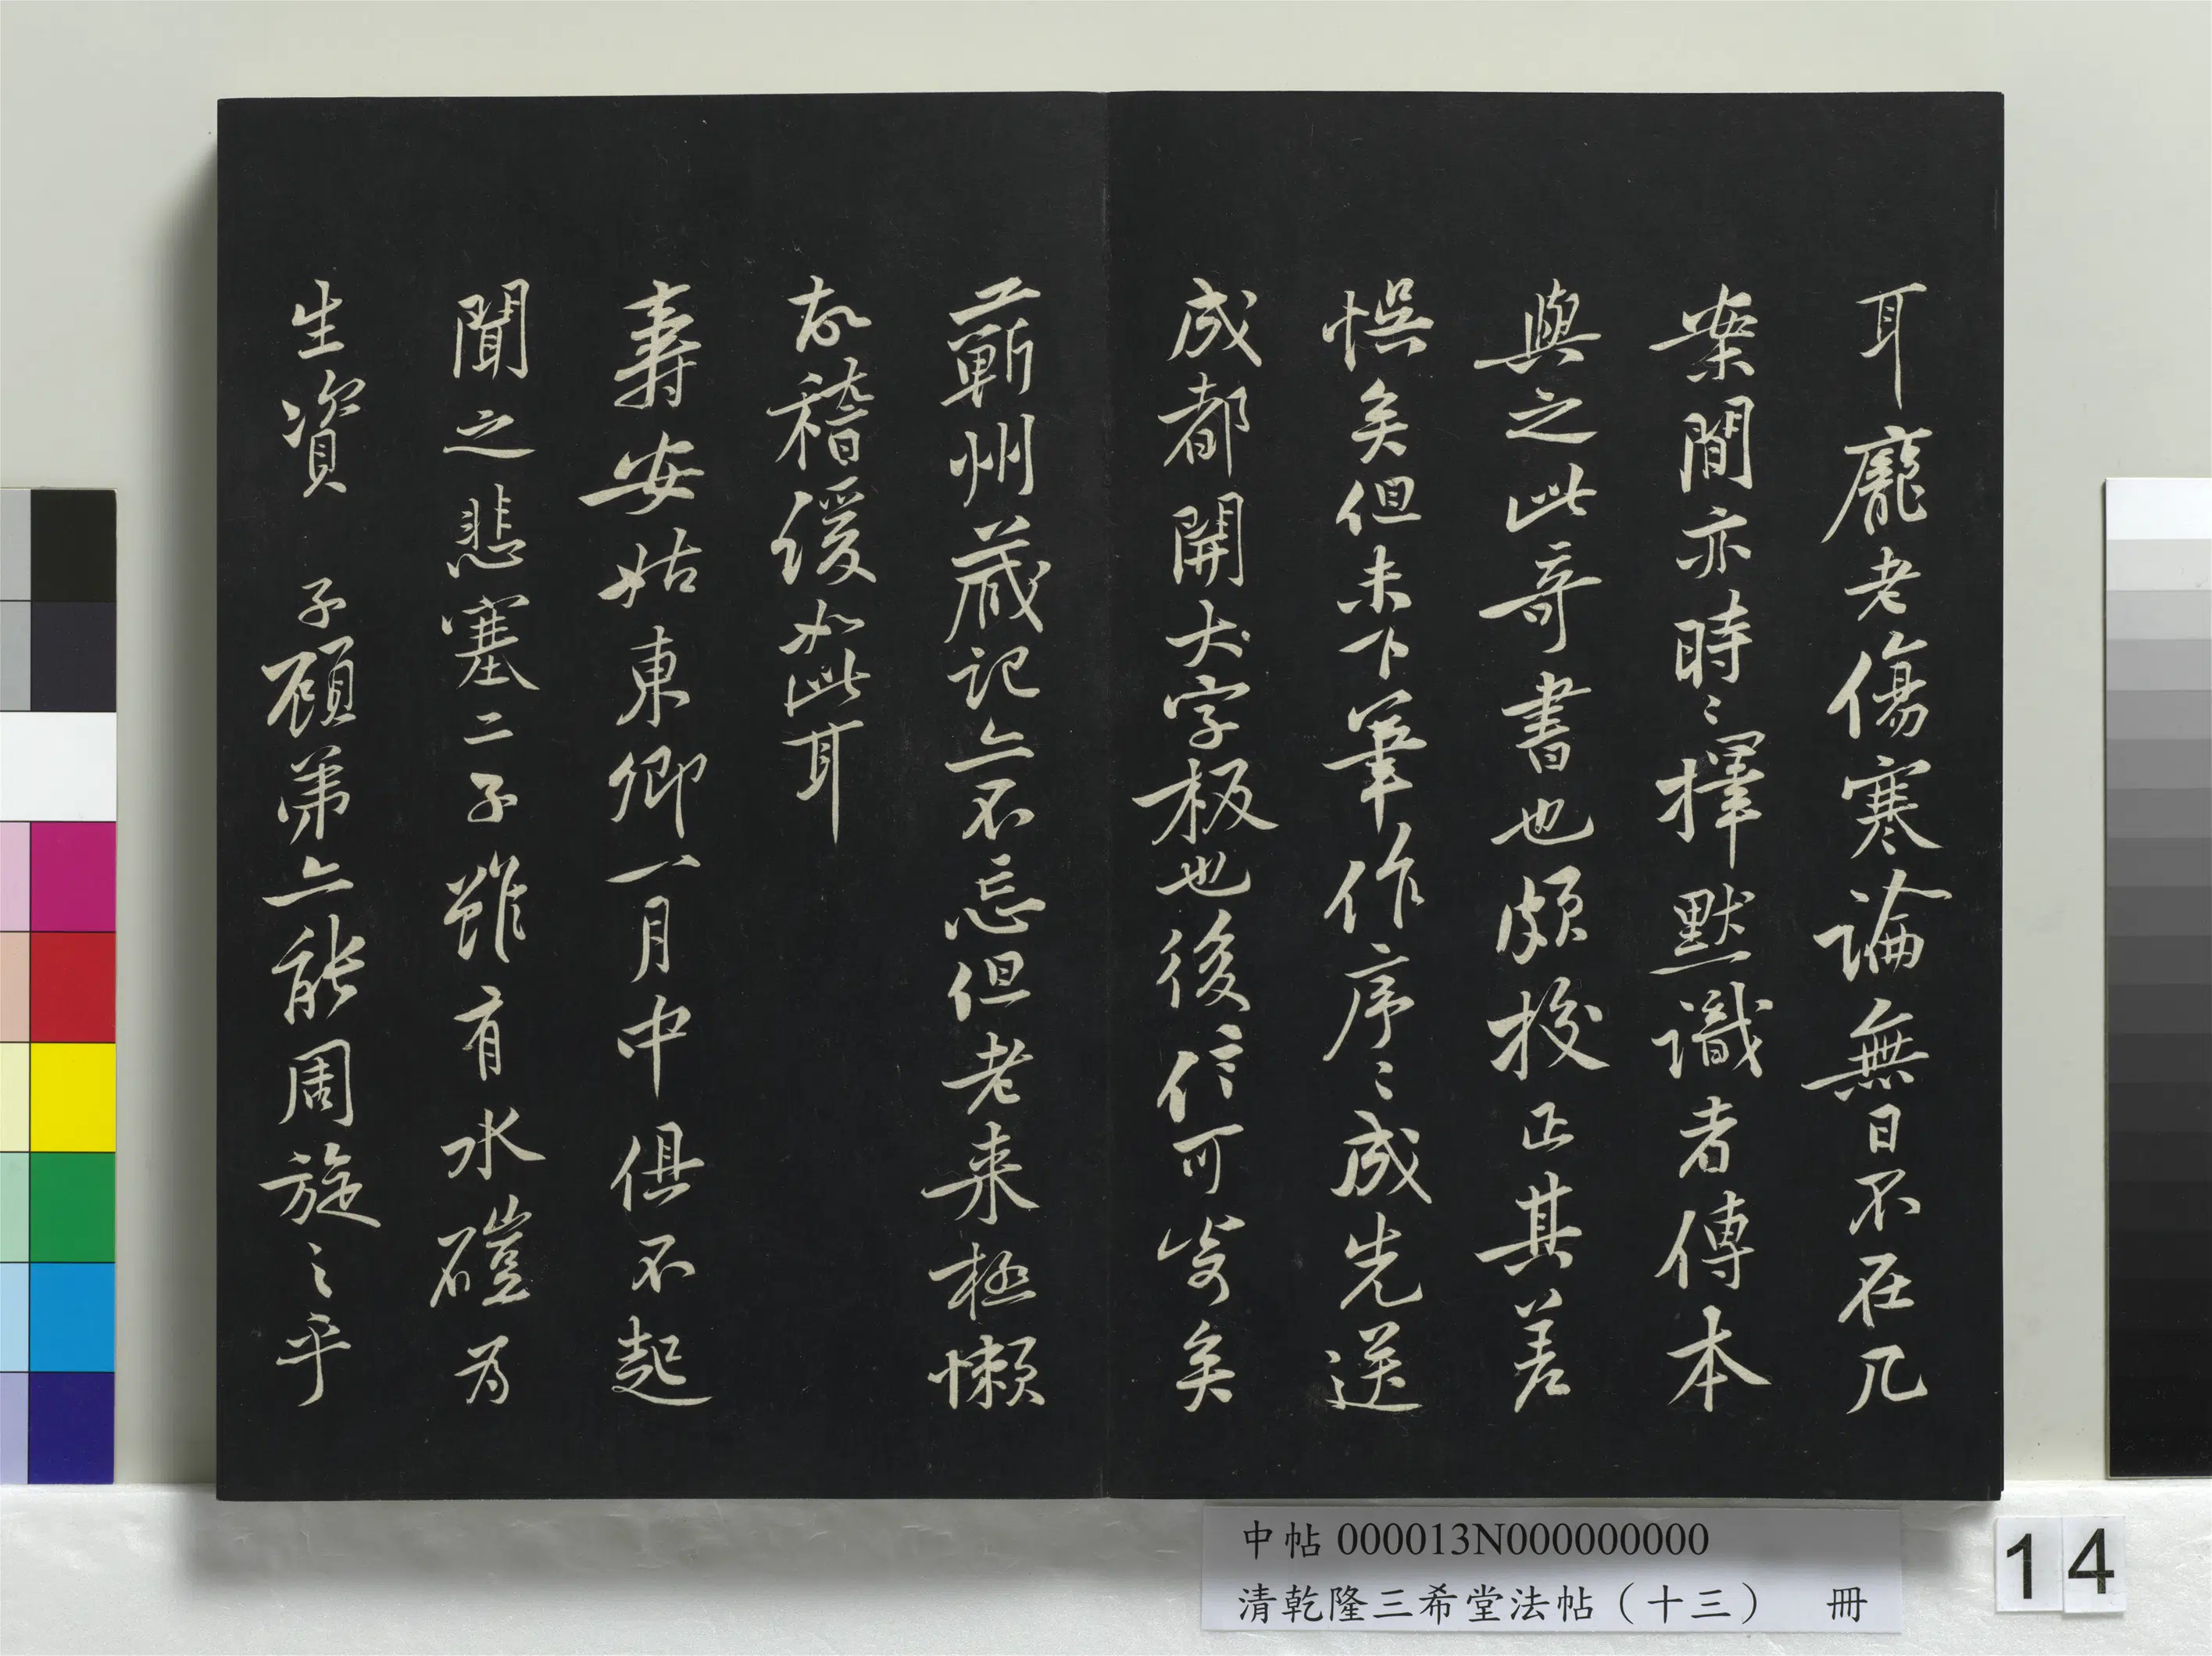 耳龐老傷寒論無日不在几
案間亦時〻擇默識者傳本
與之此奇書也頗挍正其差
悮矣但未下筆作序〻成先送
成都開大字板也後信可寄矣
蘄州藏記亦不忘但老来極懶
故稽緩如此耳
壽安姑東卿一月中俱不起
聞之悲塞二子雖有水磑為
生資 子顧弟亦能周旋之乎
中帖 000013N000000000
清乾隆三希堂法帖（十三） 冊
14